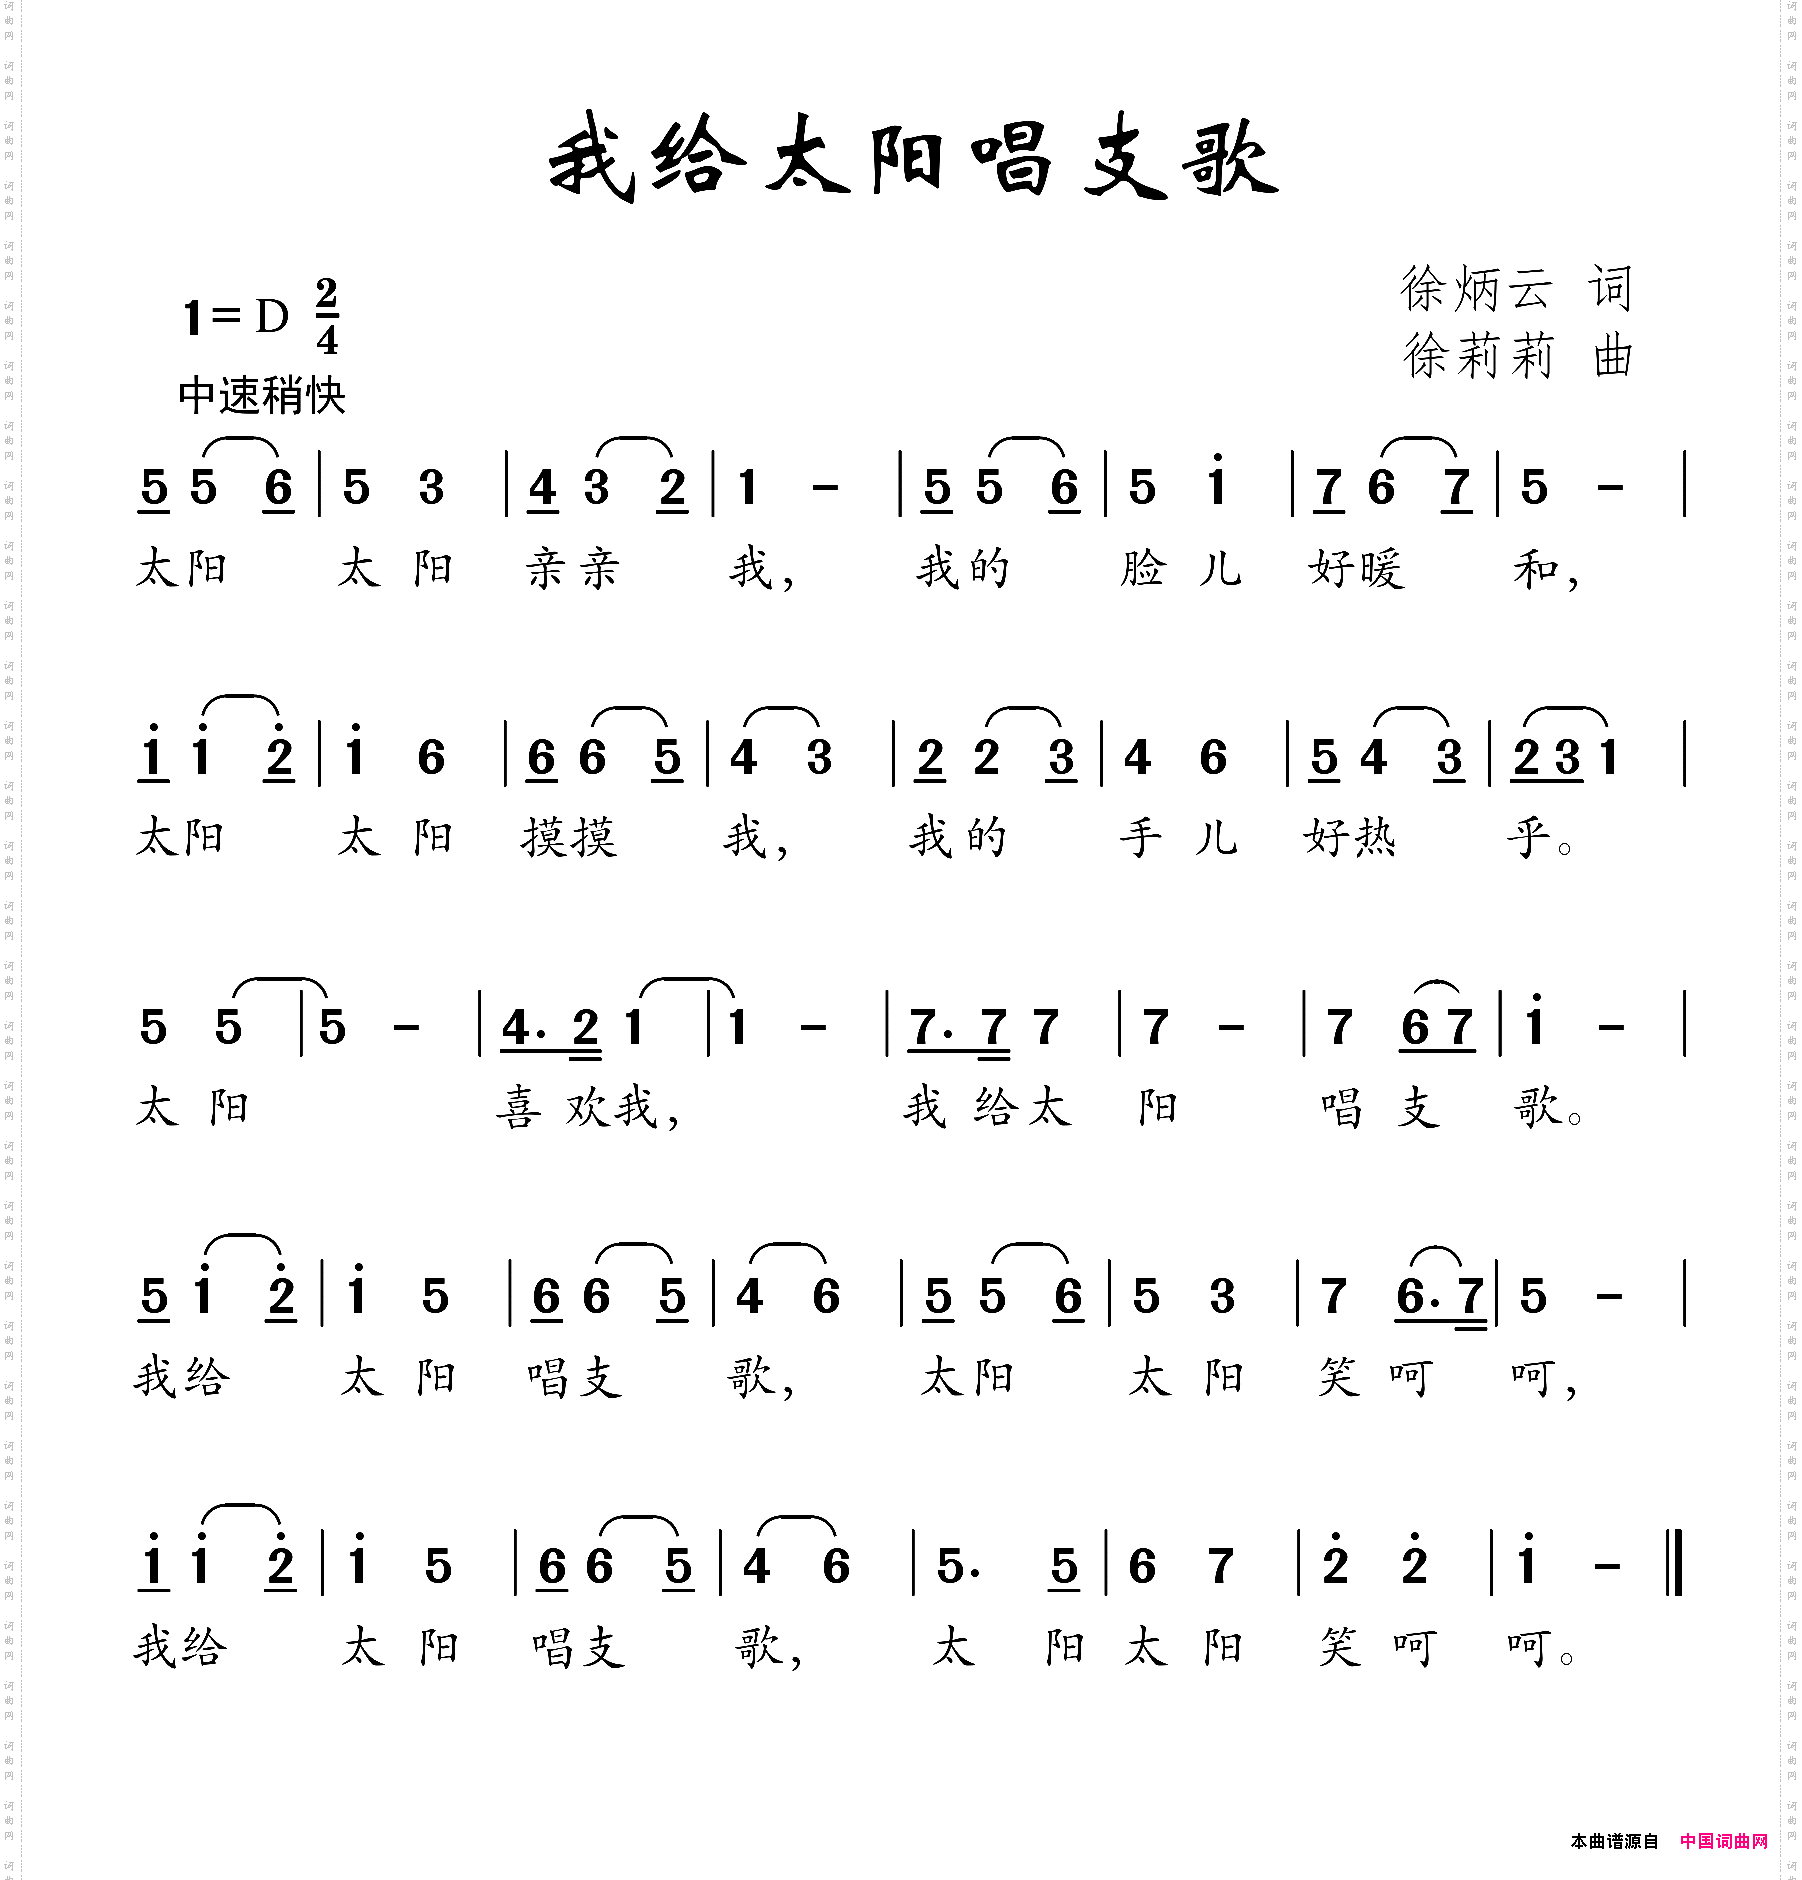 我给太阳唱支歌
1= D 2/4
徐炳云 词
徐莉莉 曲
中速稍快
5 5 6 | 5 3 | 4 3 2 | 1 - | 5 5 6 | 5 i | 7 6 7 | 5 - |
太阳 太阳 亲亲 我， 我的 脸儿 好暖 和，
i i 2̇ | i 6 | 6 6 5 | 4 3 | 2 2 3 | 4 6 | 5 4 3 | 2 3 1 |
太阳 太阳 摸摸 我， 我的 手儿 好热 乎。
5 5 | 5 - | 4. 2 1 | 1 - | 7. 7 7 | 7 - | 7 6 7 | i - |
太阳 喜欢我， 我给太 阳 唱支 歌。
5 i 2̇ | i 5 | 6 6 5 | 4 6 | 5 5 6 | 5 3 | 7 6. 7 | 5 - |
我给 太阳 唱支 歌， 太阳 太阳 笑呵 呵，
i i 2̇ | i 5 | 6 6 5 | 4 6 | 5. 5 | 6 7 | 2̇ 2̇ | i - ‖
我给 太阳 唱支 歌， 太阳 太阳 笑呵 呵。
本曲谱源自 中国词曲网